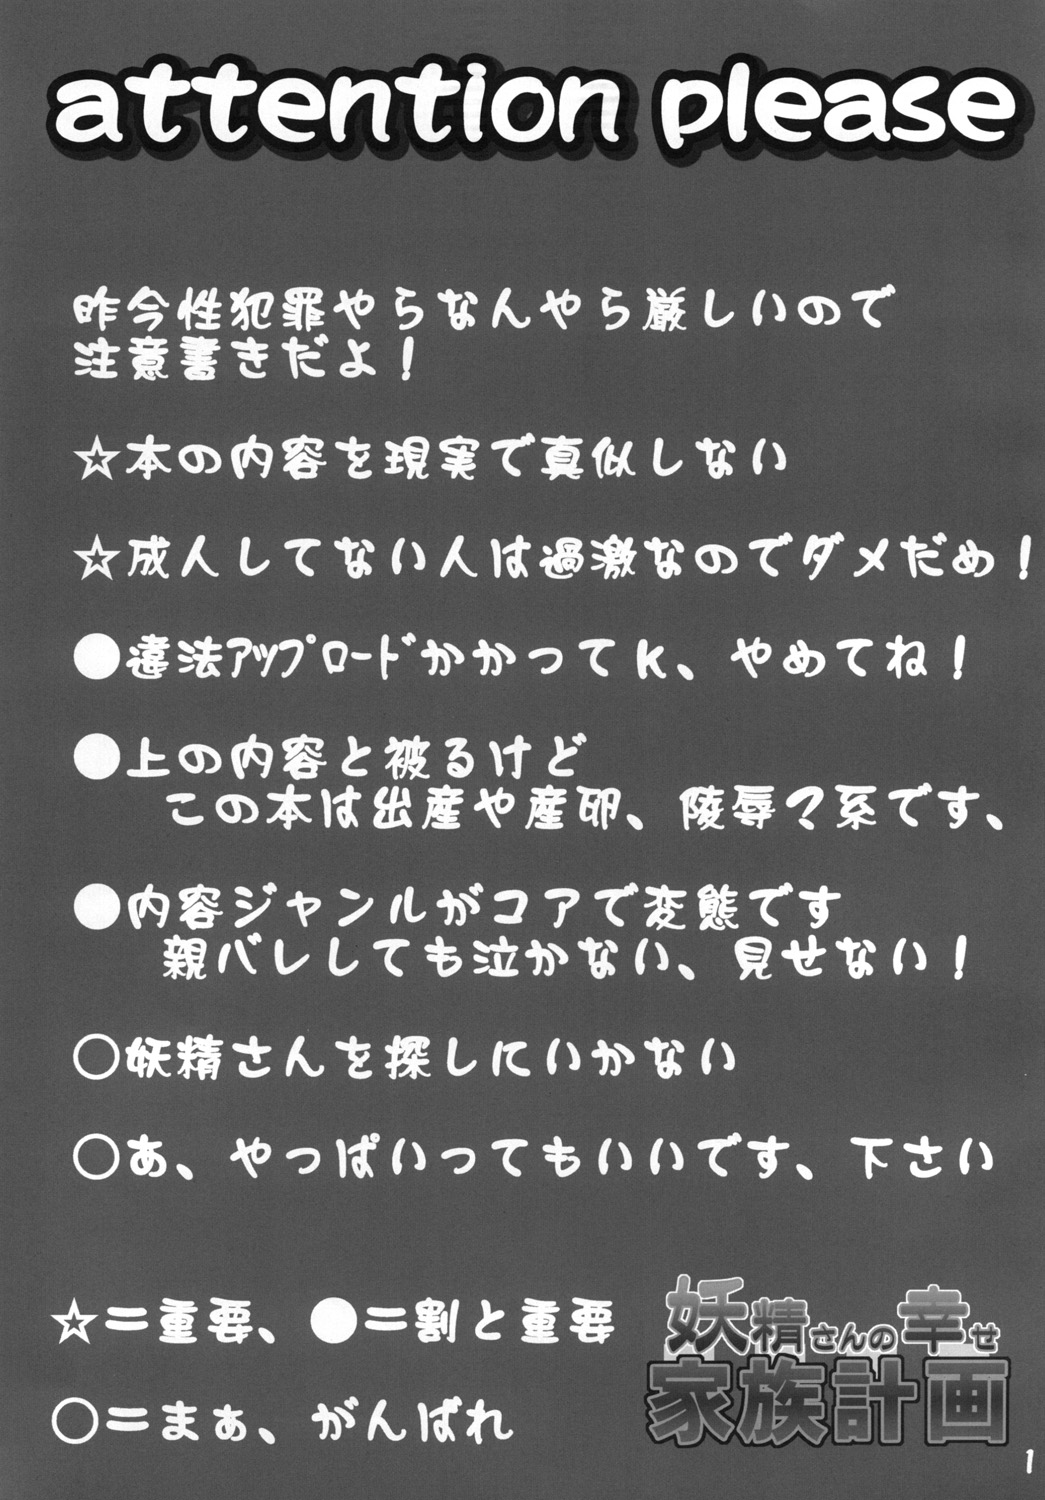 attention please
昨今性犯罪やらなんやら厳しいので
注意書きだよ！
☆本の内容を現実で真似しない
☆成人してない人は過激なのでダメだめ！
●違法ｱｯﾌﾟﾛｰﾄﾞかかってk、やめてね！
●上の内容と被るけど
この本は出産や産卵、陵辱？系です、
●内容ジャンルがコアで変態です
親バレしても泣かない、見せない！
○妖精さんを探しにいかない
○あ、やっぱいってもいいです、下さい
☆＝重要、●＝割と重要
○＝まぁ、がんばれ
妖精さんの幸せ
家族計画
1